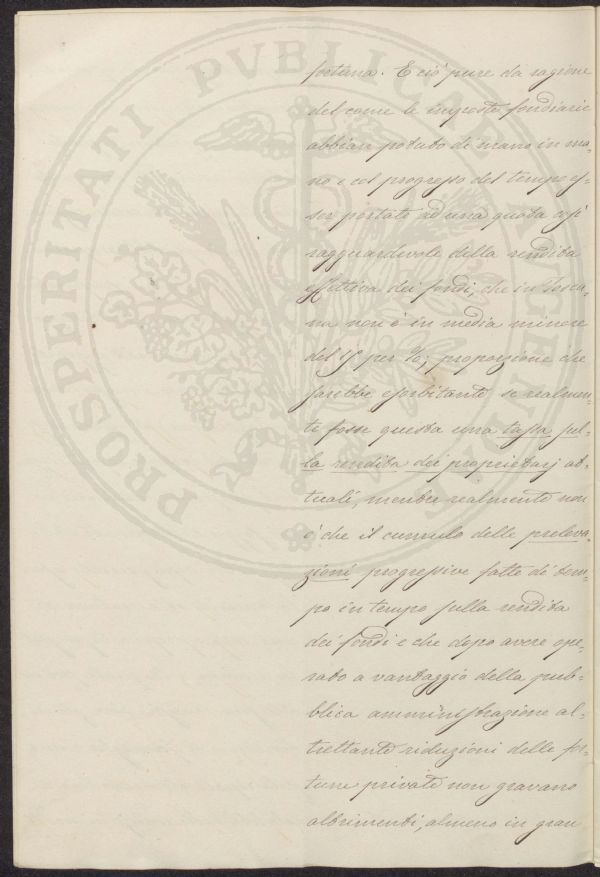 fortuna. E ciò pure dà ragione
del come le imposte fondiarie
abbian potuto di mano in ma-
no e col progresso del tempo es-
ser portate ad una quota così
ragguardevole della rendita
effettiva dei fondi, che in Tosca-
na non è in media minore
del 15 per %; proporzione che
sarebbe esorbitante se realmen-
te fosse questa una tassa sul-
la rendita dei proprietarj at-
tuali, mentre realmente non
è che il cumulo delle preleva-
zioni progressive fatte di tem-
po in tempo sulla rendita
dei fondi e che dopo avere ope-
rato a vantaggio della pub-
blica amministrazione al-
trettante riduzioni delle for-
tune private non gravano
altrimenti, almeno in gran
PROSPERITATI PVBLICAE AVGENDAE